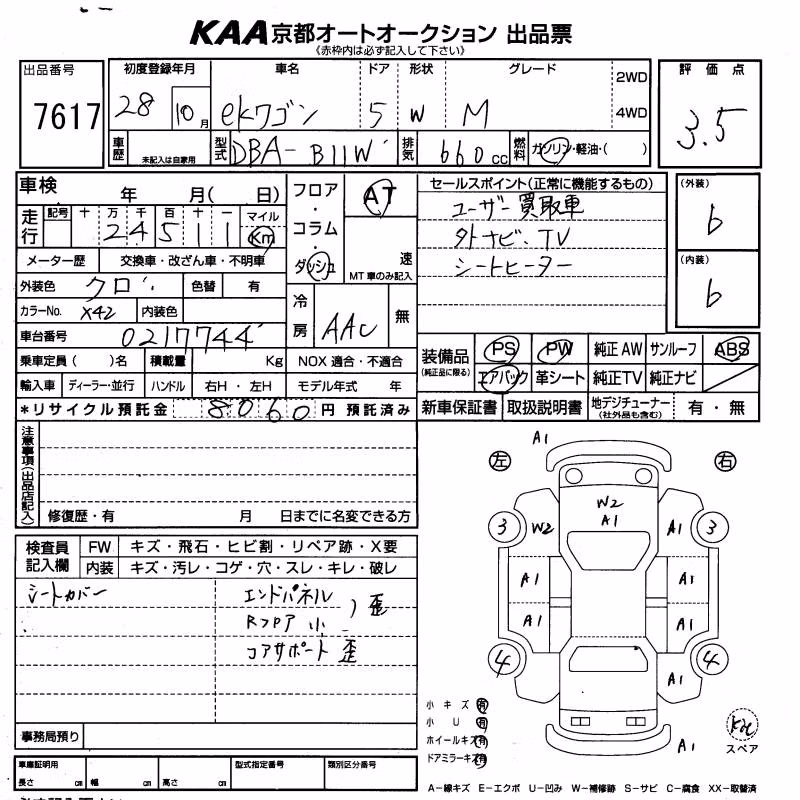 KAA 京都オートオークション 出品票
《赤枠内は必ず記入して下さい》
出品番号 初度登録年月 車名 ドア 形状 グレード 評価点
7617 28 10月 ekワゴン 5 W M 2WD 4WD 3.5
車歴 未記入は自家用 型式 DBA-B11W 排気 660cc 燃料 ガソリン・軽油・( )
車検 年 月( 日) フロア・コラム・ダッシュ AT
速 MT車のみ記入
走行 記号 十 万 千 百 十 一 マイル Km
24511
メーター歴 交換車・改ざん車・不明車
外装色 クロ 色替 有
カラーNo. X42 内装色
冷房 AAC 無
車台番号 0217744
乗車定員( )名 積載量 Kg NOX 適合・不適合
輸入車 ディーラー・並行 ハンドル 右H・左H モデル年式 年
*リサイクル預託金 8060 円 預託済み
セールスポイント(正常に機能するもの)
ユーザー買取車
外ナビ、TV
シートヒーター
(外装)
6
(内装)
6
装備品 (純正品に限る) PS PW 純正AW サンルーフ ABS
エアバック 革シート 純正TV 純正ナビ
新車保証書 取扱説明書 地デジチューナー (社外品も含む) 有・無
注意事項(出品店記入)
修復歴・有 月 日までに名変できる方
検査員記入欄 FW キズ・飛石・ヒビ割・リペア跡・X要
内装 キズ・汚レ・コゲ・穴・スレ・キレ・破レ
シートカバー エンドパネル
Rフロア 小 ) 歪
コアサポート 歪
事務局預り
車庫証明用 型式指定番号 類別区分番号
長さ cm 幅 cm 高さ cm
A1
左 右
W2
A1
3 W2 A1 3
A1 A1
A1 A1
4 A1 4
A1
小キズ 有
小U 有
ホイールキズ 有
ドアミラーキズ 有
スペア
A-線キズ E-エクボ U-凹み W-補修跡 S-サビ C-腐食 XX-取替済